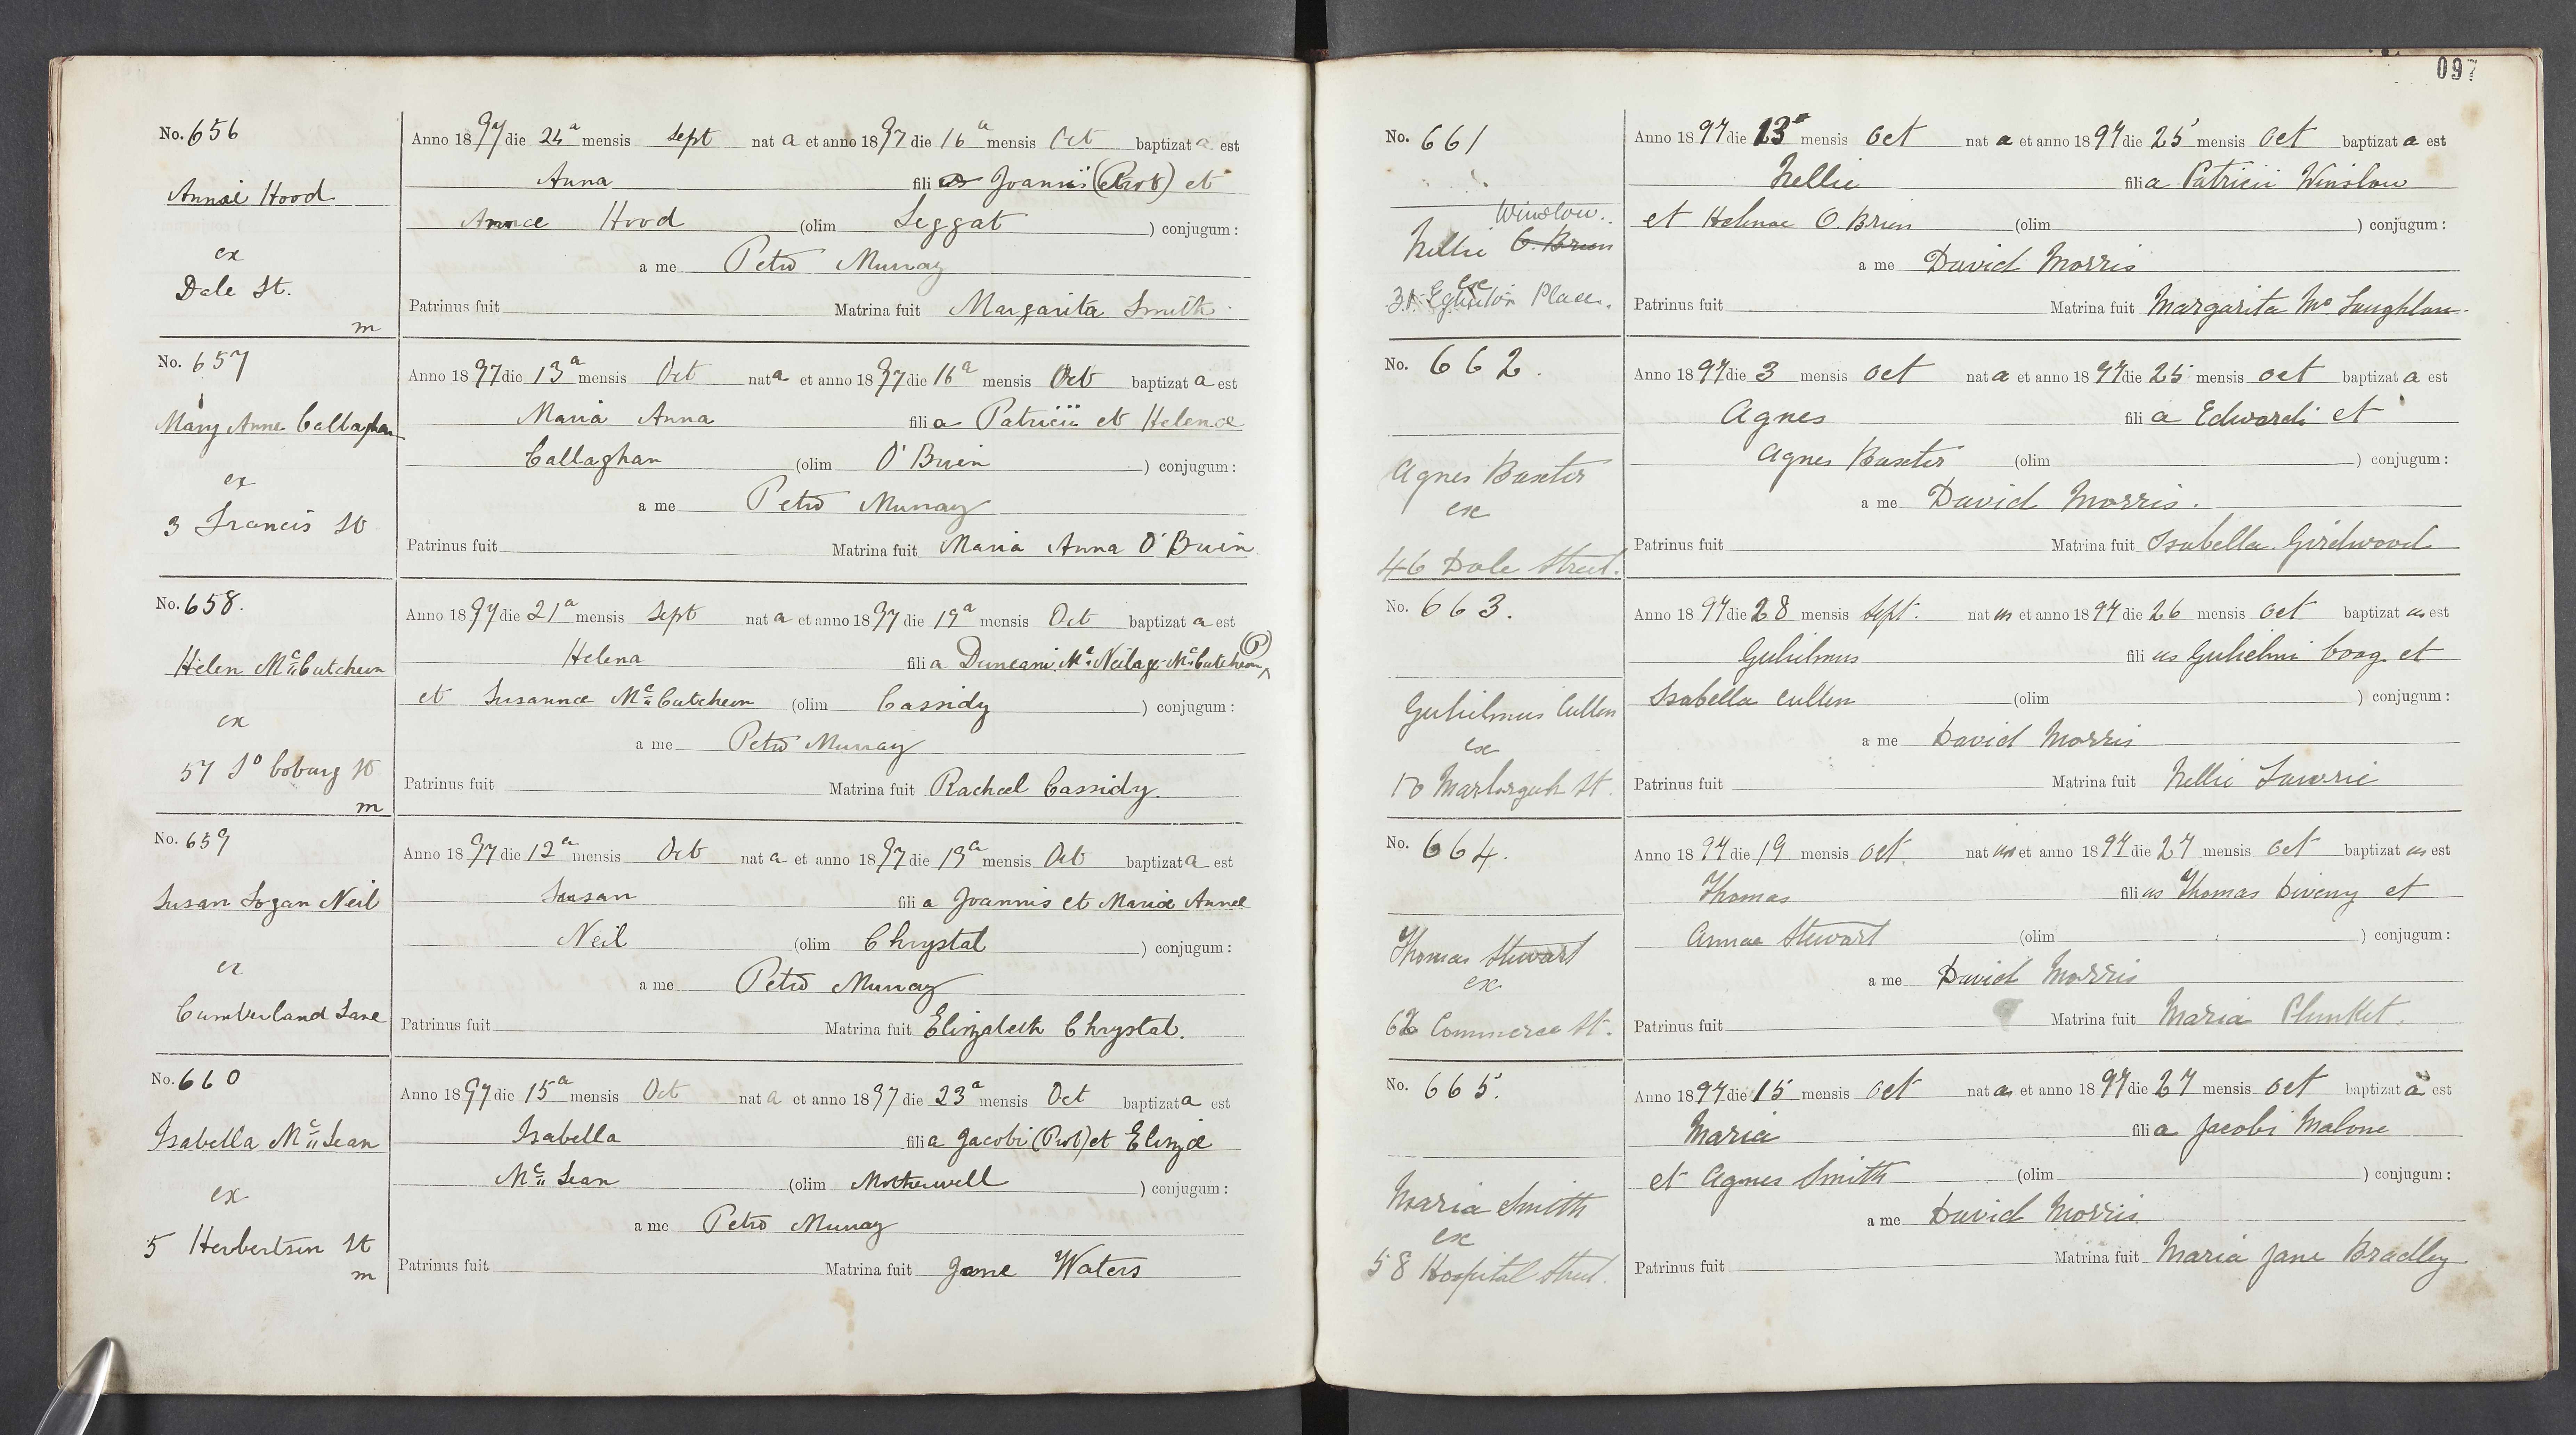 No. 656
Annie Hood
ex
Dale St.
m
Anno 1897 die 24a mensis Sept nata et anno 1897 die 16a mensis Oct baptizata est
Anna filia Joannis (Prot) et
Annae Hood (olim Leggat ) conjugum:
a me Petro Murray
Patrinus fuit Matrina fuit Margarita Smith
No. 657
Mary Anne Callaghan
ex
3 Francis St
Anno 1897 die 13a mensis Oct nata et anno 1897 die 16a mensis Oct baptizata est
Maria Anna filia Patricii et Helenae
Callaghan (olim O'Brien ) conjugum:
a me Petro Murray
Patrinus fuit Matrina fuit Maria Anna O'Brien
No. 658.
Helen McCutcheon
ex
57 So Coburg St
m
Anno 1897 die 21a mensis Sept nata et anno 1897 die 19a mensis Oct baptizata est
Helena filia Duncani McNeilage McCutcheon (P)
et Susannae McCutcheon (olim Cassidy ) conjugum:
a me Petro Murray
Patrinus fuit Matrina fuit Rachael Cassidy
No. 659
Susan Logan Neil
ex
Cumberland Lane
Anno 1897 die 12a mensis Oct nata et anno 1897 die 19a mensis Oct baptizata est
Susan filia Joannis et Mariae Annae
Neil (olim Chrystal ) conjugum:
a me Petro Murray
Patrinus fuit Matrina fuit Elizabeth Chrystal.
No. 660
Isabella McLean
ex
5 Herbertson St
m
Anno 1897 die 15a mensis Oct nata et anno 1897 die 23a mensis Oct baptizata est
Isabella filia Jacobi (Prot) et Elizae
McLean (olim Motherwell ) conjugum:
a me Petro Murray
Patrinus fuit Matrina fuit Jane Waters
097
No. 661
Winslow.
Nellie O.Brien
ex
31 Eglinton Place.
Anno 1897 die 13a mensis Oct nata et anno 1897 die 25 mensis Oct baptizata est
Nellie filia Patricii Winslow
et Helenae O.Brien (olim ) conjugum:
a me David Morris
Patrinus fuit Matrina fuit Margarita McLaughlan
No. 662.
Agnes Baxter
ex
46 Dale Street.
Anno 1897 die 3 mensis Oct nata et anno 1897 die 25 mensis Oct baptizata est
Agnes filia Edwardi et
Agnes Baxter (olim ) conjugum:
a me David Morris.
Patrinus fuit Matrina fuit Isabella Girdwood
No. 663.
Gulielmus Cullen
ex
Marlorguh St.
Anno 1897 die 28 mensis Sept. natus et anno 1897 die 26 mensis Oct baptizatus est
Gulielmus filius Gulielmi Boag et
Isabella Cullen (olim ) conjugum:
a me David Morris
Patrinus fuit Matrina fuit Nellie Lawrie
No. 664.
Thomas Stewart
ex
Commerce St.
Anno 1897 die 19 mensis Oct. natus et anno 1897 die 27 mensis Oct baptizatus est
Thomas filius Thomas Diveny et
Annae Stewart (olim ) conjugum:
a me David Morris
Patrinus fuit Matrina fuit Maria Plunket.
No. 665.
Maria Smith
ex
58 Hospital Street.
Anno 1897 die 15 mensis Oct nata et anno 1897 die 27 mensis Oct baptizata est
Maria filia Jacobi Malone
et Agnes Smith (olim ) conjugum:
a me David Morris
Patrinus fuit Matrina fuit Maria Jane Bradley